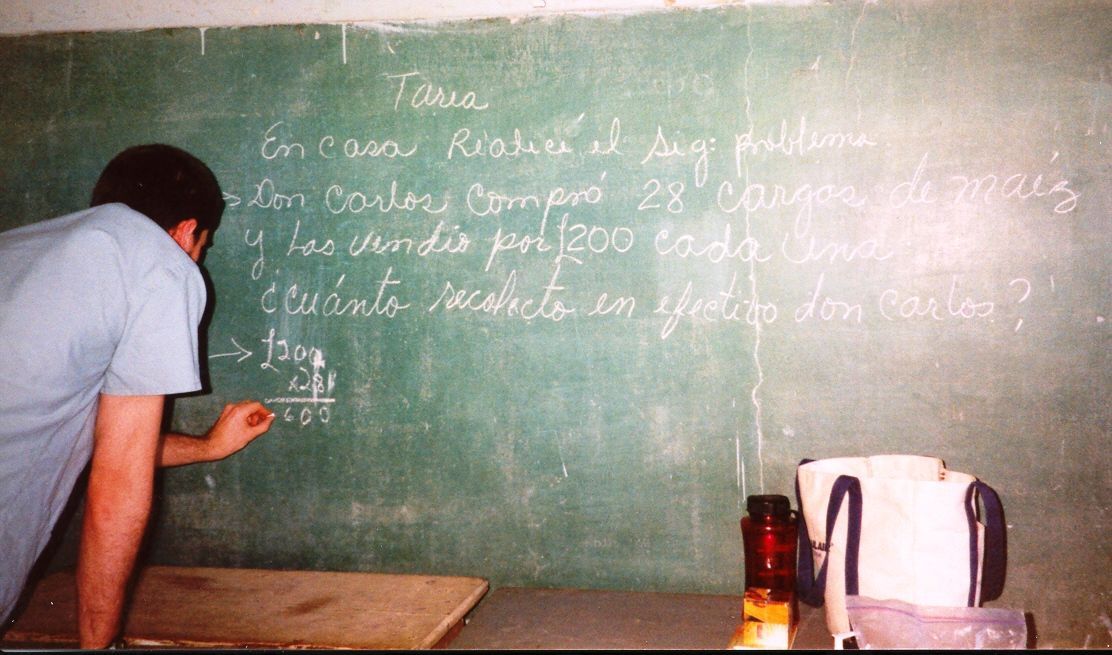 Tarea
En casa Realicé el sig: problema.
Don Carlos Compró 28 cargas de maíz
y Las vendio por L200 cada Una
¿cuánto recolecto en efectivo don carlos?
L200
x28
600